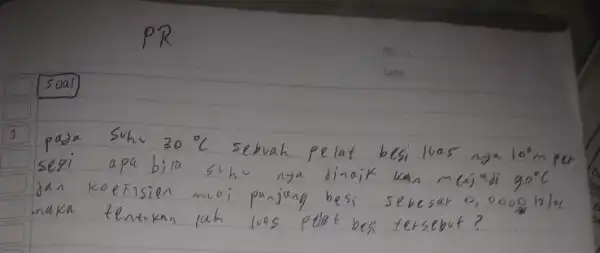 PR
soal
1 pada suhu 30°C sebuah pelat besi luas nya 10 m per
segi apa bila suhu nya dinaik kan menjadi 90°C
dan koefisien muai panjang besi sebesar 0,000012/°C
maka tentukan lah luas pelat besi tersebut ?